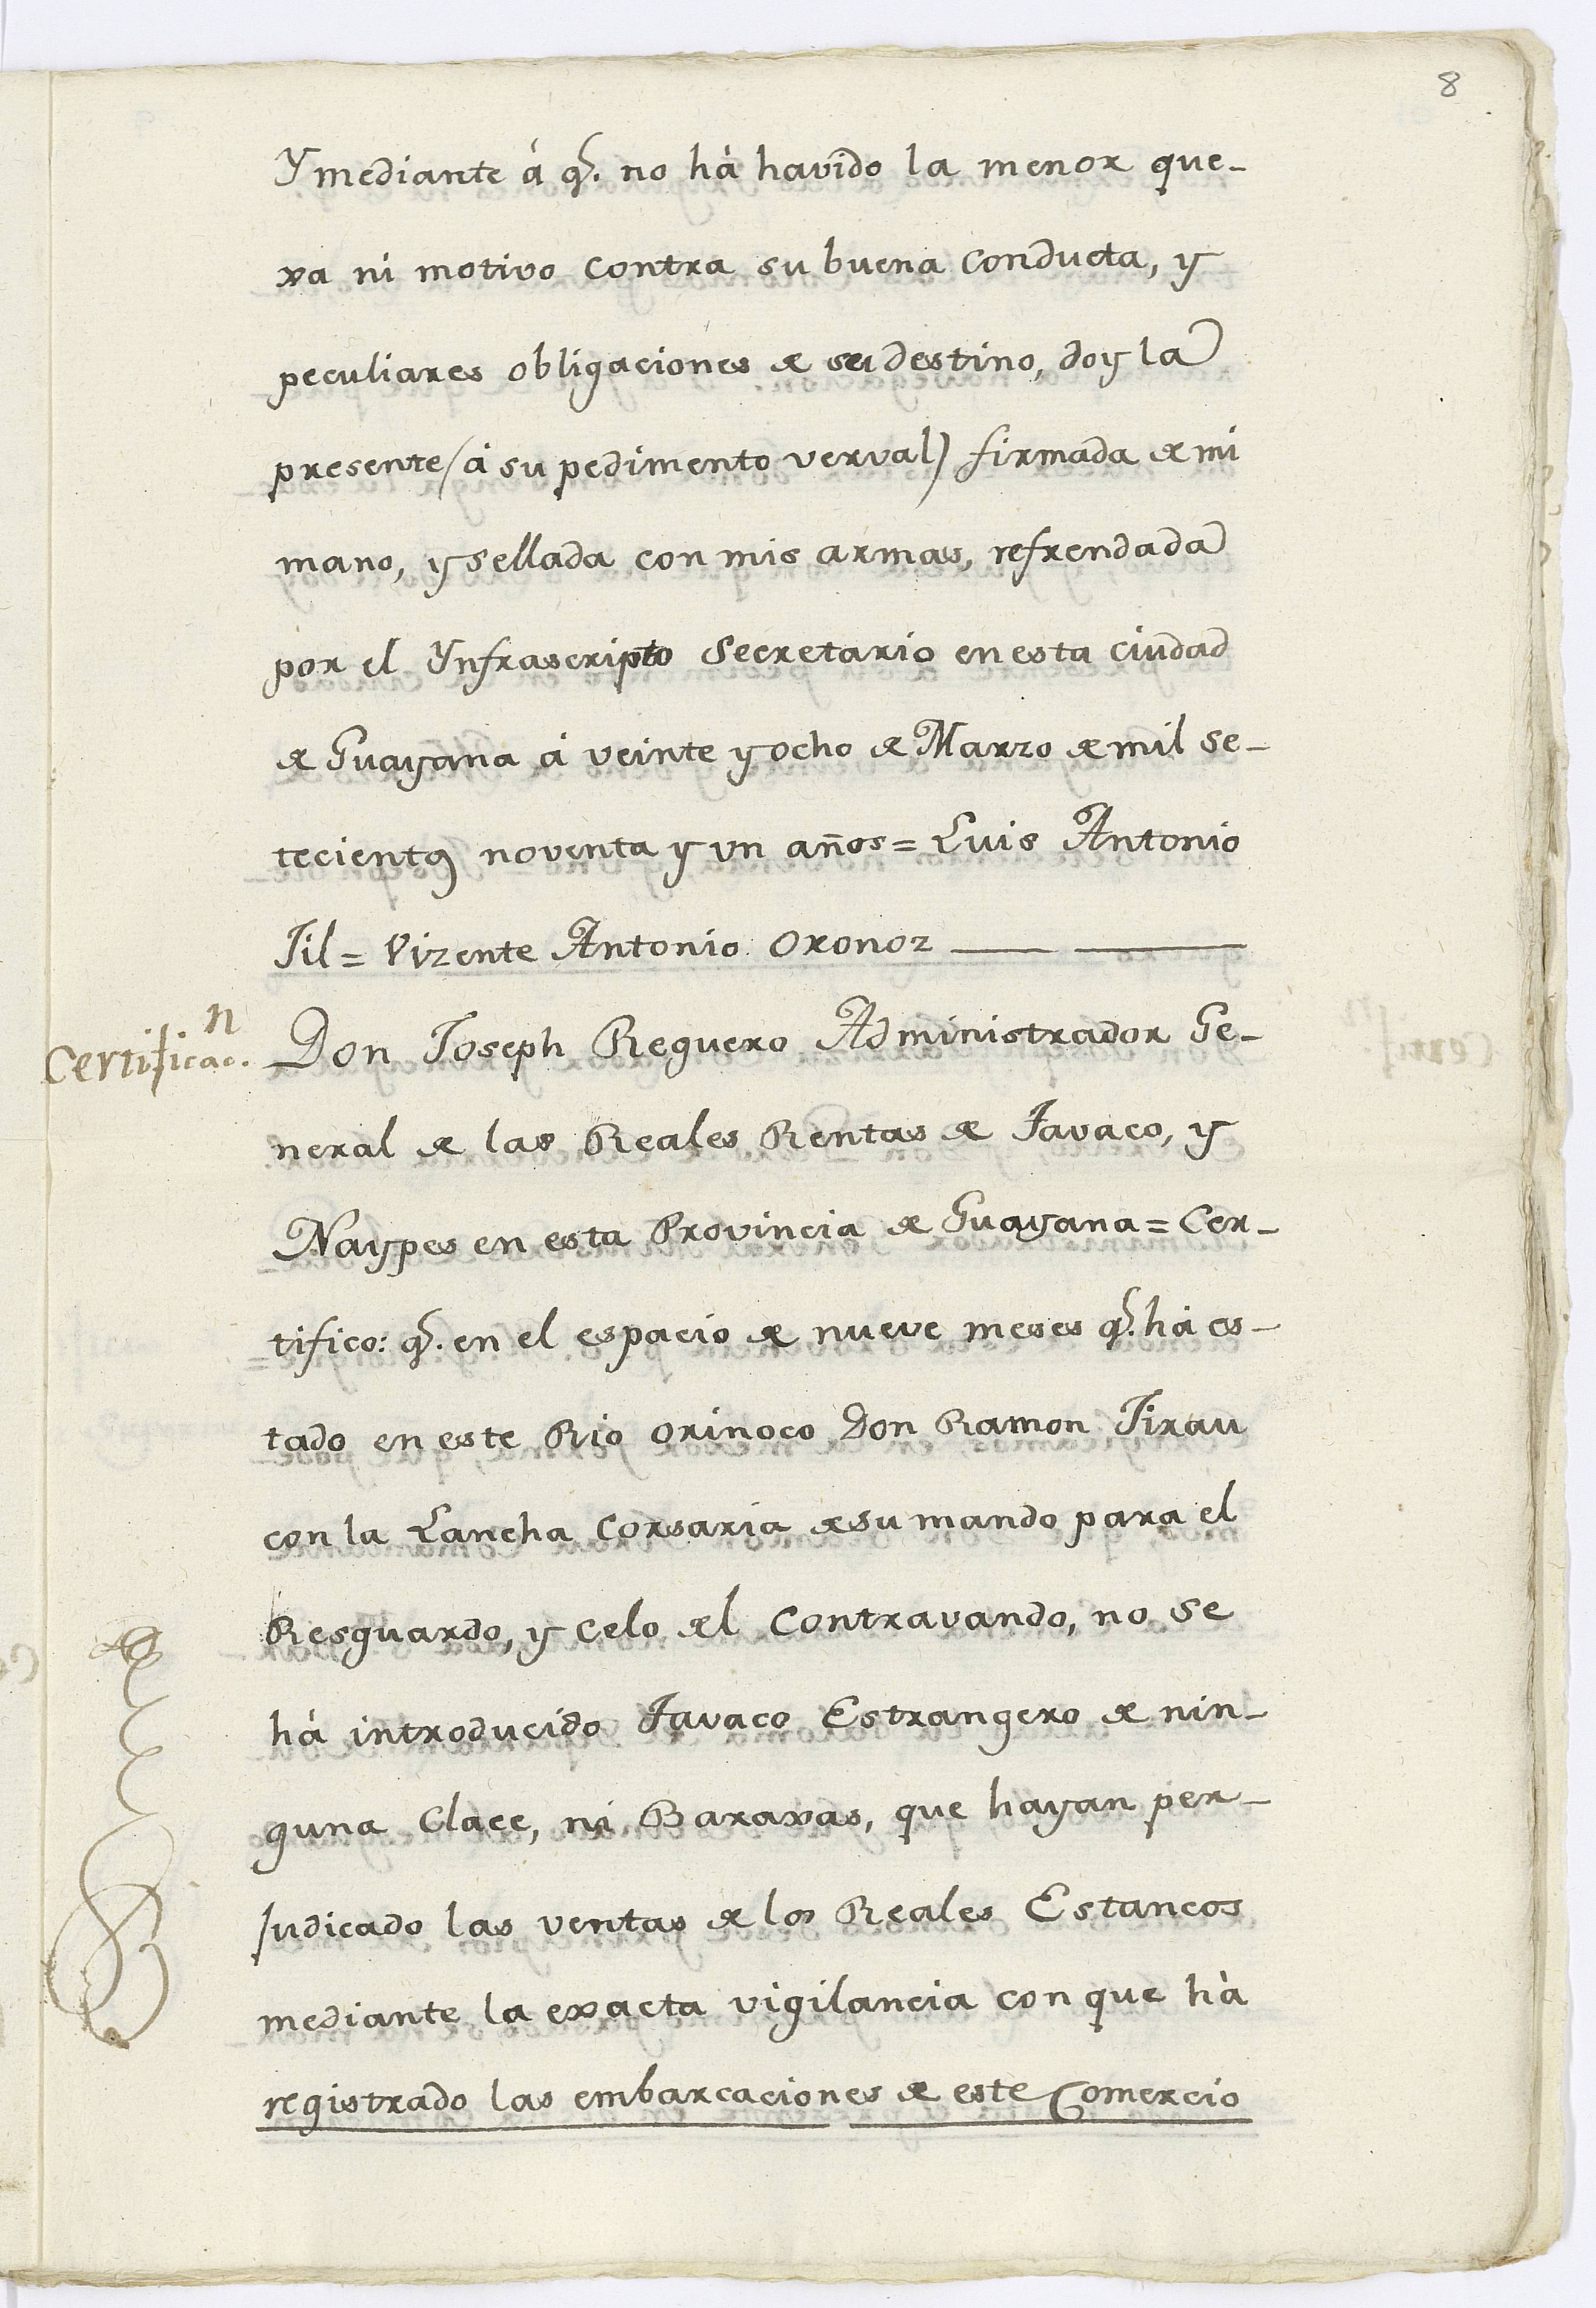 8
Y mediante á q.e no hà havido la menor que-
xa ni motivo contra su buena conducta, y
peculiares obligaciones de su destino, doy la
presente (á su pedimento verval) firmada de mi
mano, y sellada con mis armas, refrendada
por el Ynfrascripto Secretario en esta ciudad
de Guayana á veinte y ocho de Marzo de mil se-
tecientos noventa y un años = Luis Antonio
Jil = Vizente Antonio Oronoz
Certificac.n
Don Joseph Reguero Administrador Ge-
neral de las Reales Rentas de Tavaco, y
Naypes en esta Provincia de Guayana = Cer-
tifico: q.e en el espacio de nueve meses q.e há es-
tado en este Rio Orinoco Don Ramon Tirau
con la Lancha Corsaria de su mando para el
Resguardo, y celo del Contravando, no se
hà introducido Tavaco Estrangero de nin-
guna Clace, ni Baraxas, que hayan per-
judicado las ventas de los Reales Estancos
mediante la exacta vigilancia con que hà
registrado las embarcaciones de este Comercio